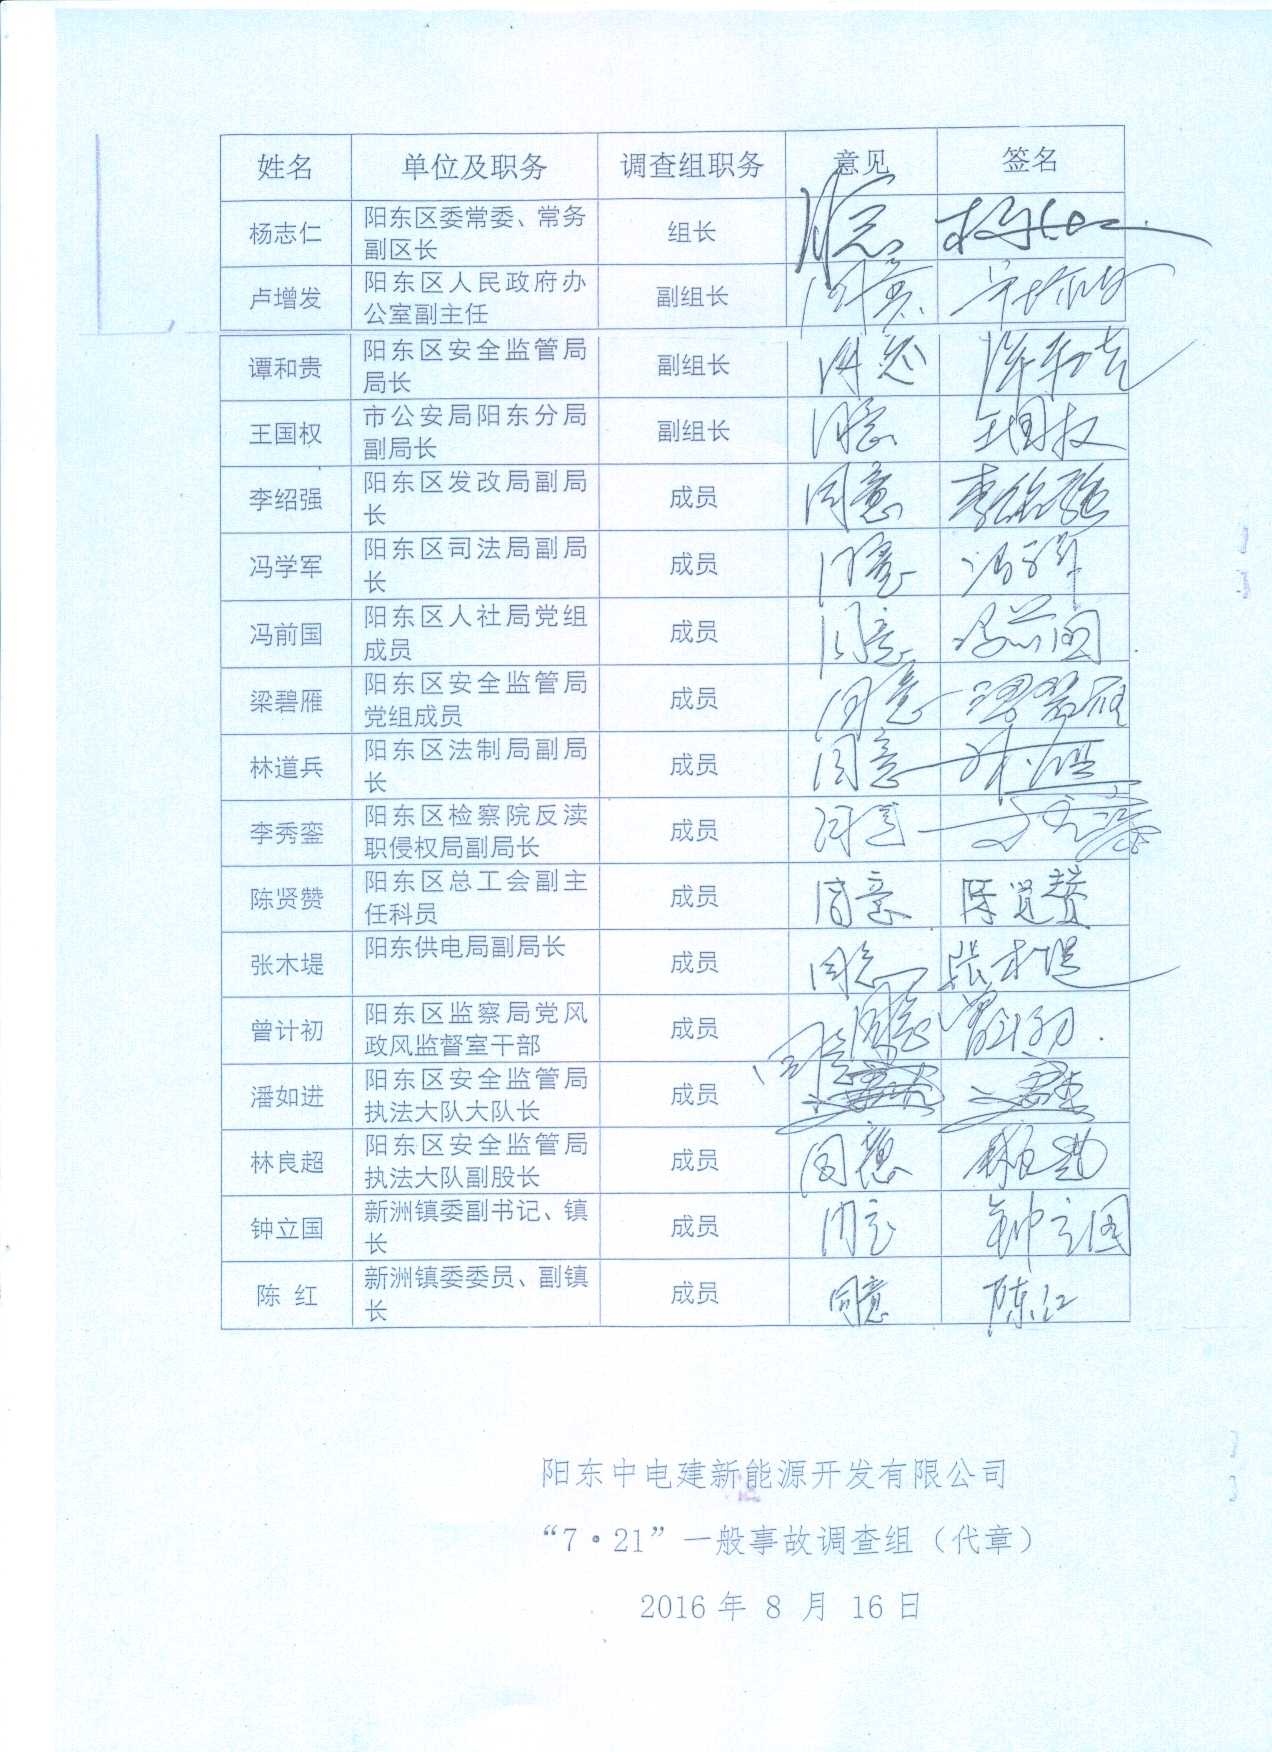 姓名 单位及职务 调查组职务 意见 签名
杨志仁 阳东区委常委、常务 组长 同意
副区长
卢增发 阳东区人民政府办 副组长 同意
公室副主任
谭和贵 阳东区安全监管局 副组长 同意
局长
王国权 市公安局阳东分局 副组长 同意 王国权
副局长
李绍强 阳东区发改局副局 成员 同意 李绍强
长
冯学军 阳东区司法局副局 成员 同意 冯学军
长
冯前国 阳东区人社局党组 成员 同意 冯前国
成员
梁碧雁 阳东区安全监管局 成员 同意 梁碧雁
党组成员
林道兵 阳东区法制局副局 成员 同意
长
李秀銮 阳东区检察院反渎 成员 同意
职侵权局副局长
陈贤赞 阳东区总工会副主 成员 同意 陈贤赞
任科员
张木堤 阳东供电局副局长 成员 同意 张木堤
曾计初 阳东区监察局党风 成员 同意 曾计初
政风监督室干部
潘如进 阳东区安全监管局 成员 同意
执法大队大队长
林良超 阳东区安全监管局 成员 同意 林良超
执法大队副股长
钟立国 新洲镇委副书记、镇 成员 同意 钟立国
长
陈 红 新洲镇委委员、副镇 成员 同意 陈红
长
阳东中电建新能源开发有限公司
“7·21”一般事故调查组（代章）
2016年 8 月 16日